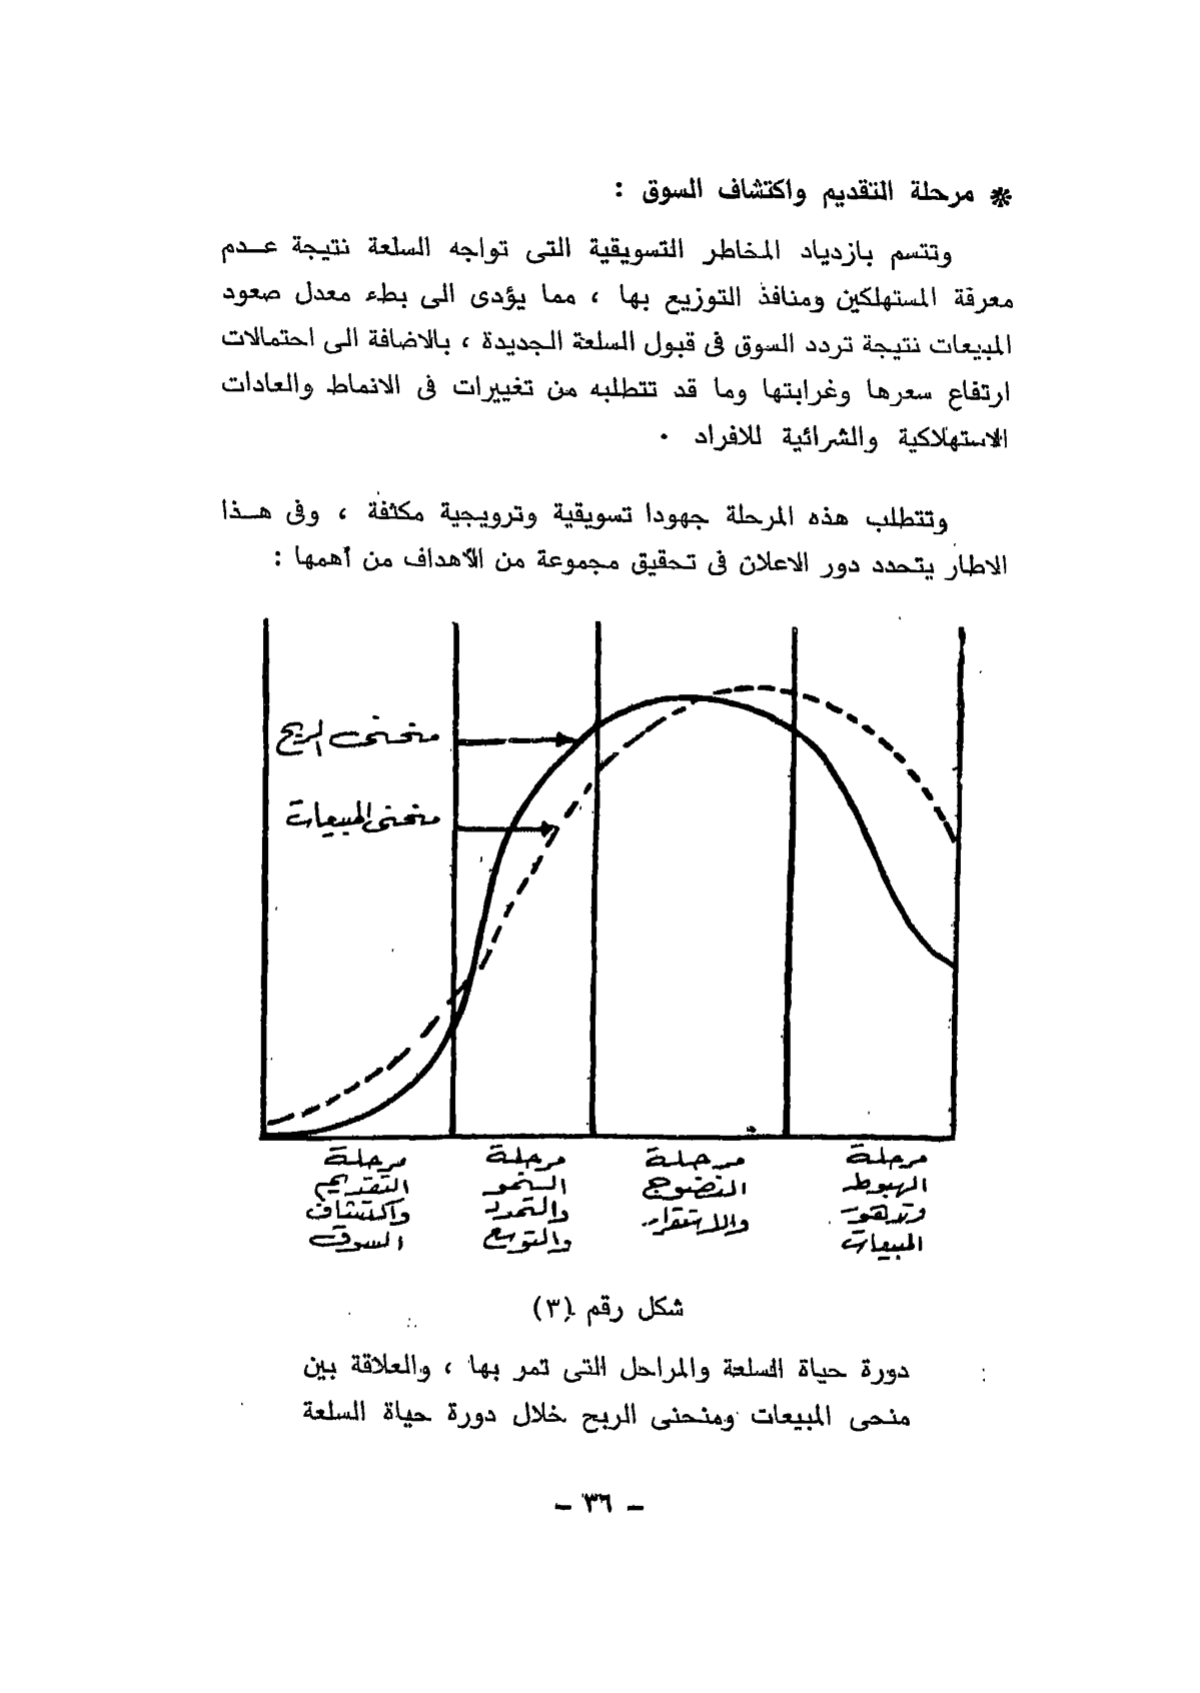 * مرحلة التقديم واكتشاف السوق :
وتتسم بازدياد المخاطر التسويقية التى تواجه السلعة نتيجة عـدم
معرفة المستهلكين ومنافذ التوزيع بها ، مما يؤدى الى بطء معدل صعود
المبيعات نتيجة تردد السوق فى قبول السلعة الجديدة ، بالاضافة الى احتمالات
ارتفاع سعرها وغرابتها وما قد تتطلبه من تغييرات فى الانماط والعادات
الاستهلاكية والشرائية للافراد .
وتتطلب هذه المرحلة جهودا تسويقية وترويجية مكثفة ، وفى هـذا
الاطار يتحدد دور الاعلان فى تحقيق مجموعة من الأهداف من أهمها :
منحنى الربح
منحنى المبيعات
مرحلة
التقديم
واكتشاف
السوق
مرحلة
النمو
والتمدد
والتوسع
مرحلة
النضوج
والاستقرار
مرحلة
الهبوط
وتدهور
المبيعات
شكل رقم (٣)
دورة حياة السلعة والمراحل التى تمر بها ، والعلاقة بين
منحى المبيعات ومنحنى الربح خلال دورة حياة السلعة
– ٣٦ –